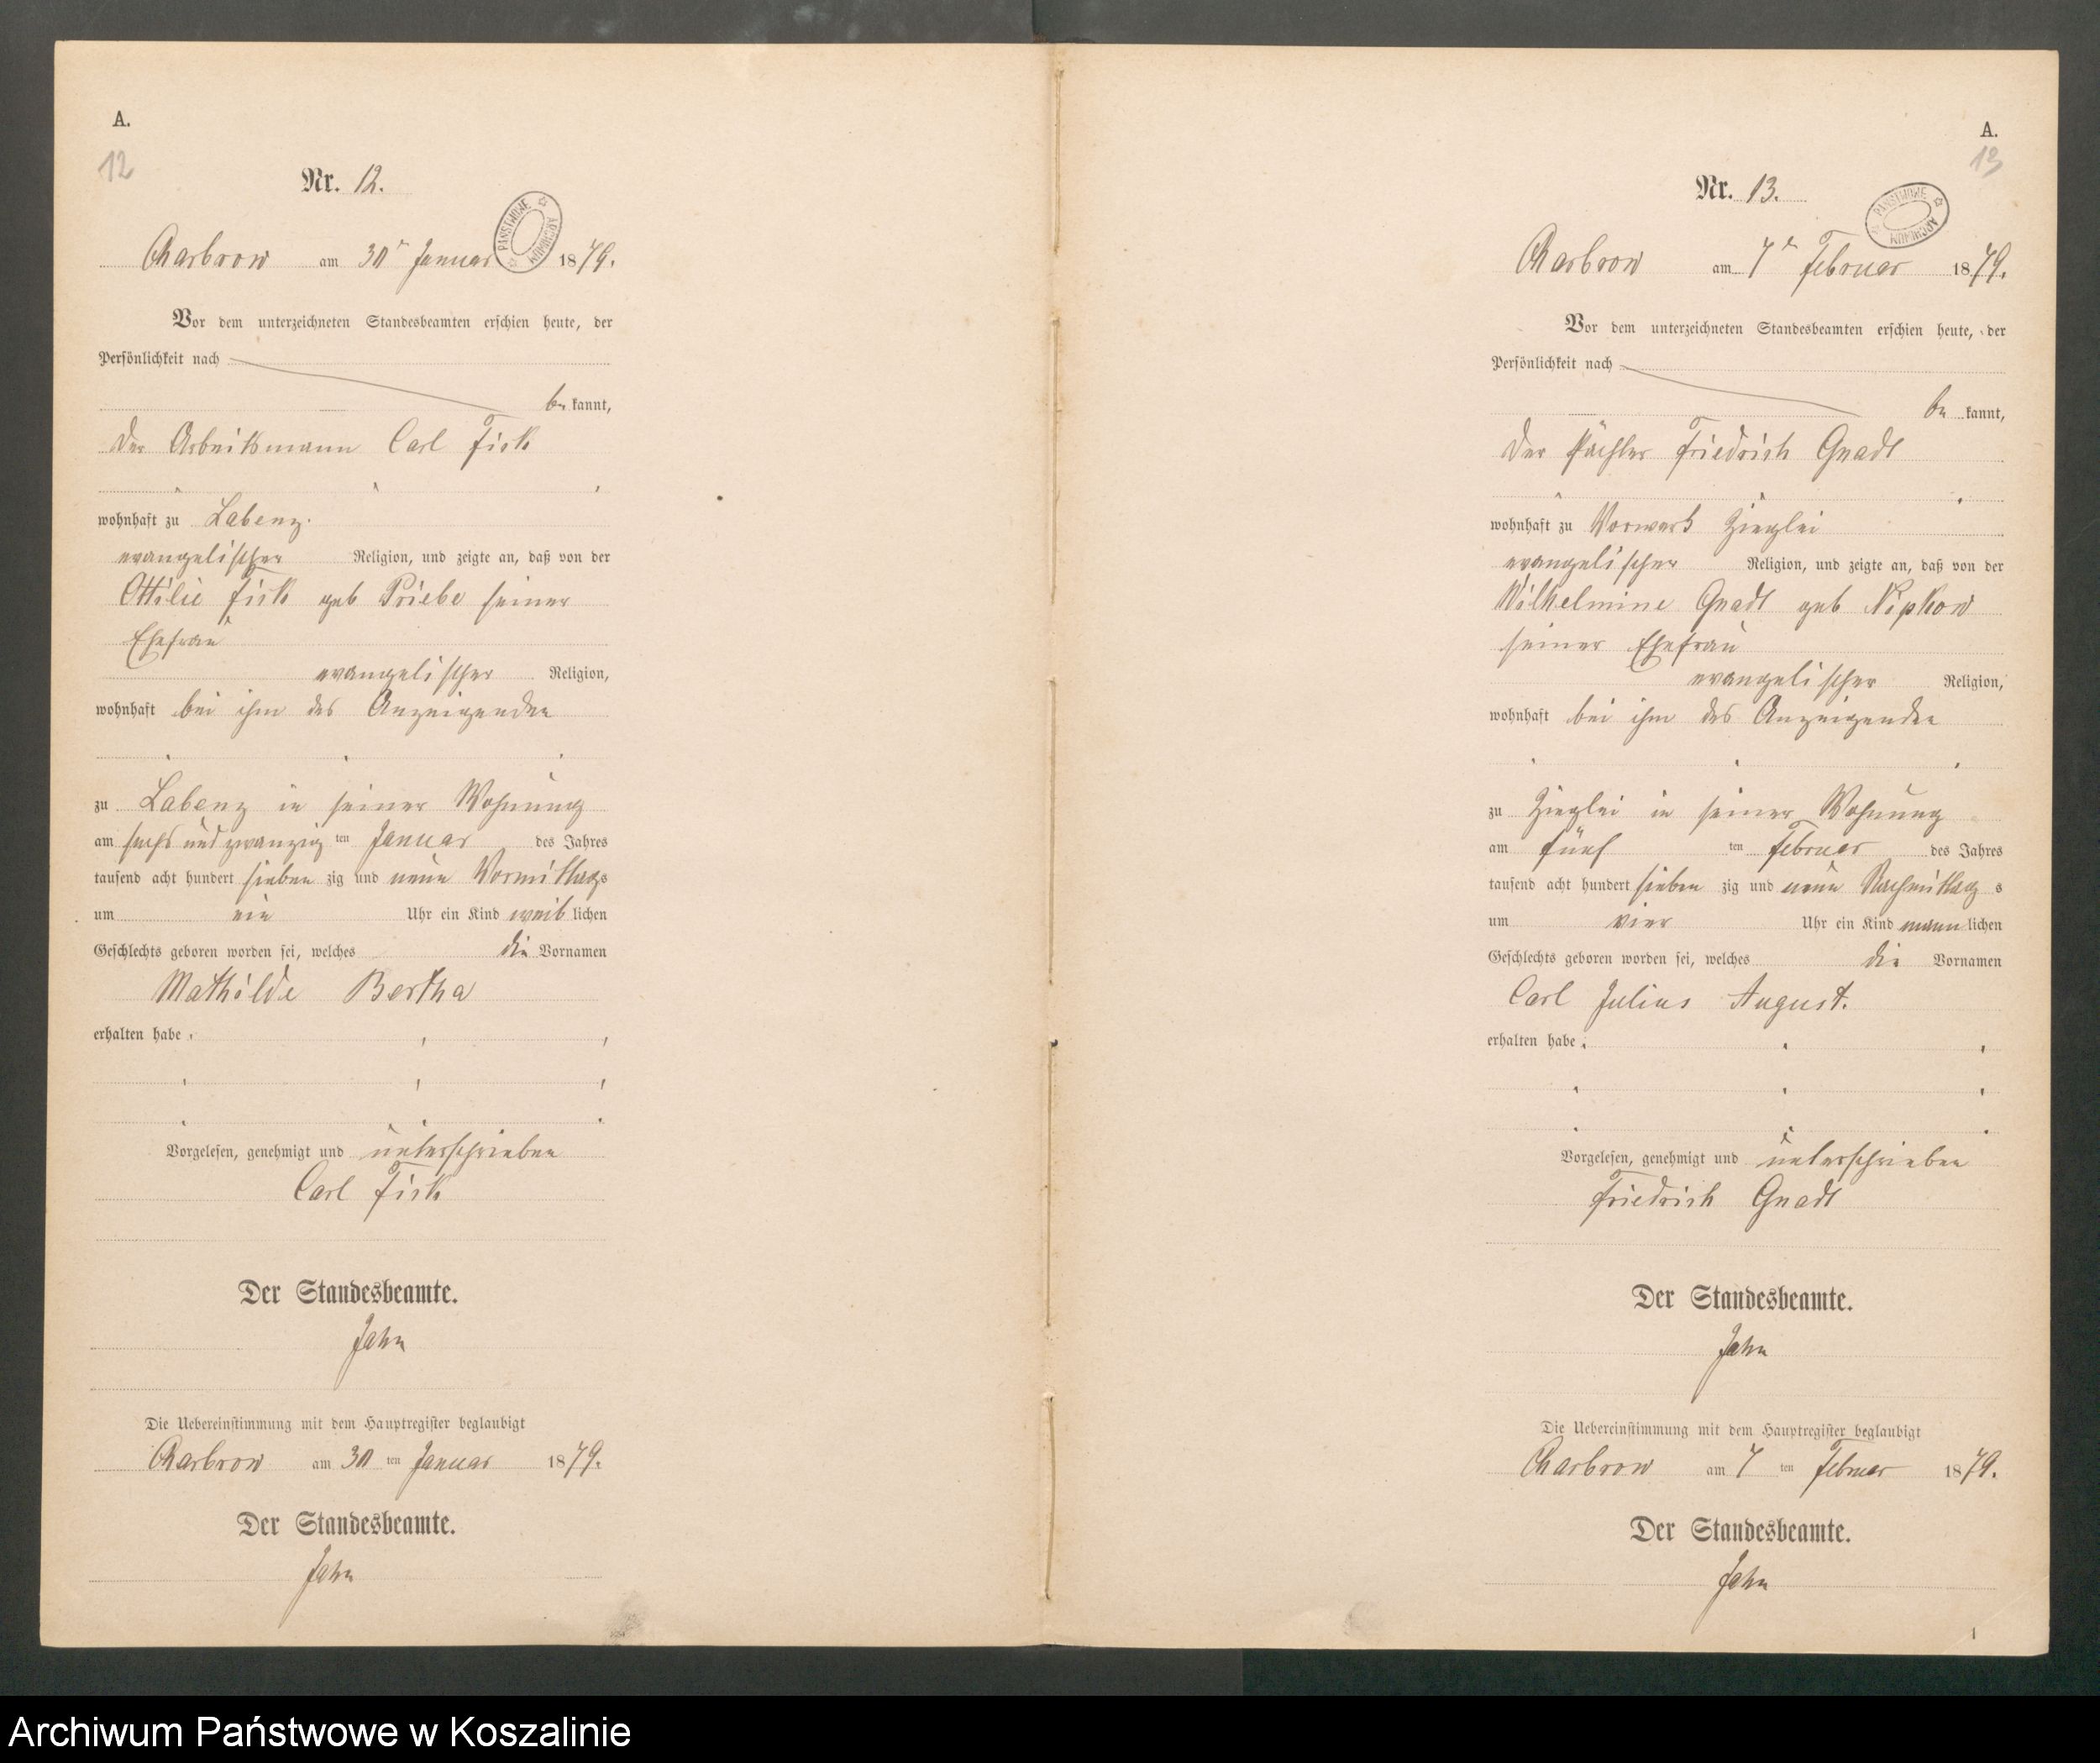 A.
12
Nr. 12.
PAŃSTWOWE ARCHIWUM
Charbrow am 30ⁿ Januar 1879.
Vor dem unterzeichneten Standesbeamten erschien heute, der
Persönlichkeit nach
be kannt,
der Arbeitsmann Carl Fick
wohnhaft zu Labenz.
evangelischer Religion, und zeigte an, daß von der
Ottilie Fick geb Priebe seiner
Ehefrau
evangelischer Religion,
wohnhaft bei ihm des Anzeigenden
zu Labenz in seiner Wohnung
am sechs und zwanzig ten Januar des Jahres
tausend acht hundert sieben zig und neun Vormittags
um ein Uhr ein Kind weib lichen
Geschlechts geboren worden sei, welches die Vornamen
Mathilde Bertha
erhalten habe
Vorgelesen, genehmigt und unterschrieben
Carl Fick
Der Standesbeamte.
Jahn
Die Uebereinstimmung mit dem Hauptregister beglaubigt
Charbrow am 30 ten Januar 1879.
Der Standesbeamte.
Jahn
A.
13
Nr. 13.
PAŃSTWOWE ARCHIWUM
Charbrow am 7ⁿ Februar 1879.
Vor dem unterzeichneten Standesbeamten erschien heute, der
Persönlichkeit nach
be kannt,
der Pächter Friedrich Gnadt
wohnhaft zu Vorwerk Zieglei
evangelischer Religion, und zeigte an, daß von der
Wilhelmine Gnadt geb Nipkow
seiner Ehefrau
evangelischer Religion,
wohnhaft bei ihm des Anzeigenden
zu Zieglei in seiner Wohnung
am fünf ten Februar des Jahres
tausend acht hundert sieben zig und neun Nachmittag s
um vier Uhr ein Kind mann lichen
Geschlechts geboren worden sei, welches die Vornamen
Carl Julius August.
erhalten habe
Vorgelesen, genehmigt und unterschrieben
Friedrich Gnadt
Der Standesbeamte.
Jahn
Die Uebereinstimmung mit dem Hauptregister beglaubigt
Charbrow am 7 ten Februar 1879.
Der Standesbeamte.
Jahn
Archiwum Państwowe w Koszalinie